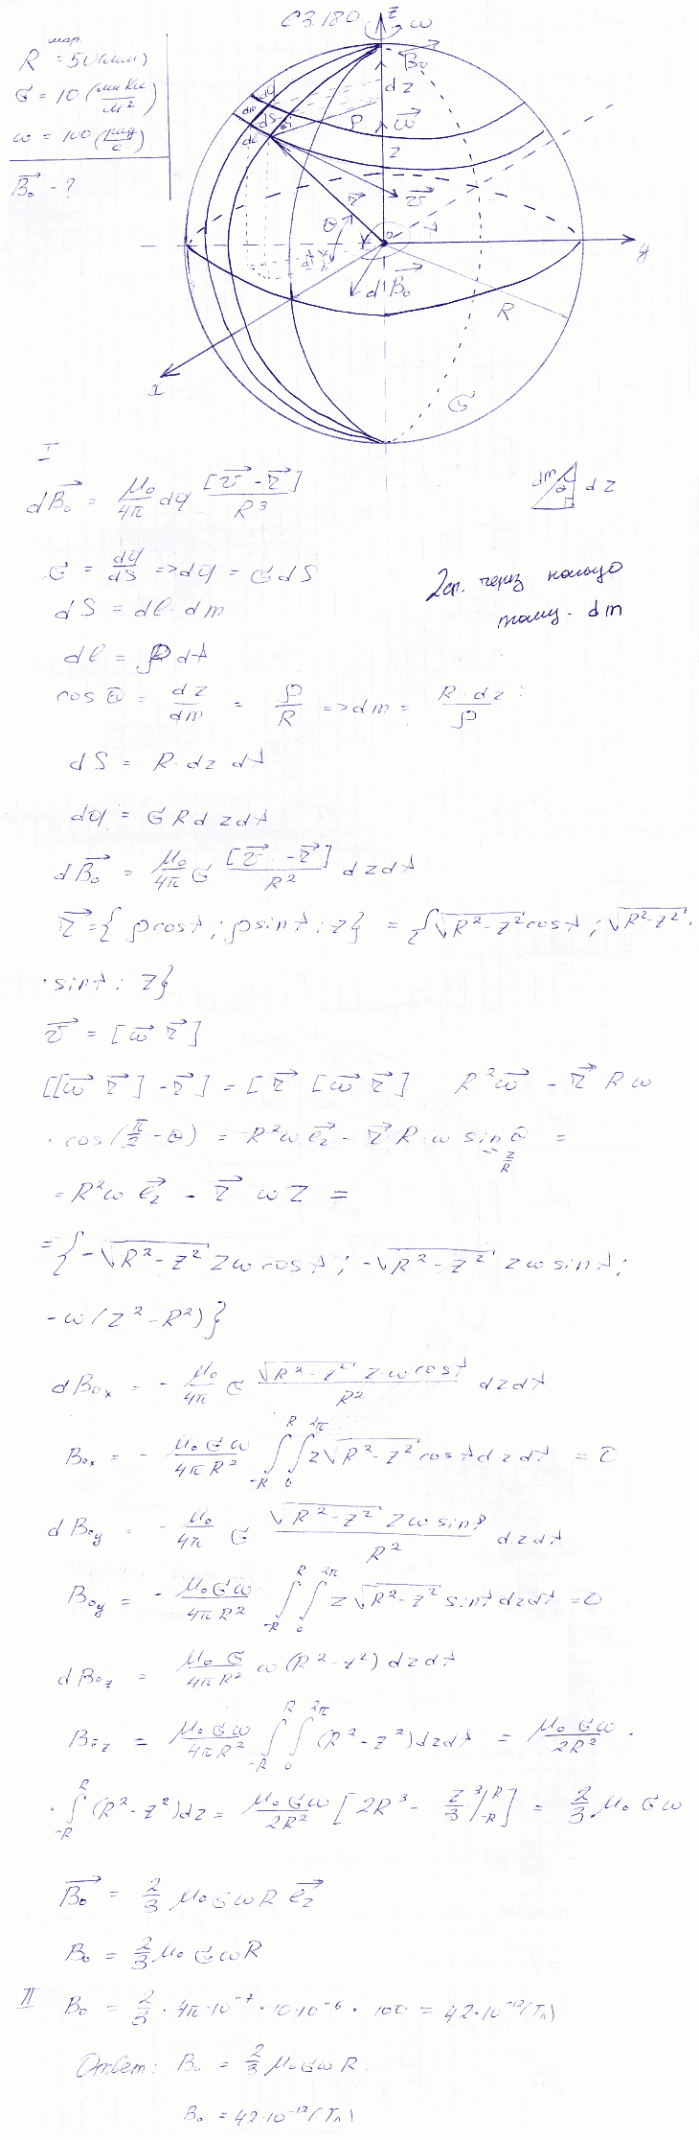 СЗ.180
R = 50 (мм)
σ = 10 (мкКл/м²)
ω = 100 (рад/с)
B₀⃗ - ?
z ω
B₀⃗
dz
ω⃗
ρ
z
dm
dS
dl
r⃗
v⃗
θ
y
dB₀⃗
R
x
σ
I
dB₀⃗ = μ₀/4π dq [v⃗ -r⃗]/R³
dm θ dz
σ = dq/dS => dq = σ dS
2сп. через кольцо
толщ. dm
dS = dl · dm
dl = ρ dλ
cos θ = dz/dm = ρ/R => dm = R · dz/ρ
dS = R · dz · dλ
dq = σ R dz dλ
dB₀⃗ = μ₀/4π σ [v⃗ -r⃗]/R² dz dλ
r⃗ = { ρcosλ ; ρsinλ ; z} = {√(R²-z²) cosλ ; √(R²-z²) ·
· sinλ ; z}
v⃗ = [ω⃗ r⃗]
[[ω⃗ r⃗] -r⃗] = [r⃗ [ω⃗ r⃗]] R²ω⃗ - r⃗ R ω
· cos(π/2 - θ) = R²ω e⃗z - r⃗ R ω sin θ =
z/R
= R²ω e⃗z - r⃗ ω z =
= {-√(R²-z²) zω cosλ ; -√(R²-z²) zω sinλ ;
-ω(z²-R²)}
dB₀x = - μ₀/4π σ √(R²-z²) z ω cosλ/R² dz dλ
B₀x = - μ₀σω/4πR² ∫₋R^R ∫₀^2π z√(R²-z²) cosλ dz dλ = 0
dB₀y = - μ₀/4π σ √(R²-z²) z ω sinλ/R² dz dλ
B₀y = - μ₀σω/4πR² ∫₋R^R ∫₀^2π z √(R²-z²) sinλ dz dλ = 0
dB₀z = μ₀σ/4πR² ω (R²-z²) dz dλ
B₀z = μ₀σω/4πR² ∫₋R^R ∫₀^2π (R²-z²) dz dλ = μ₀σω/2R² ·
· ∫₋R^R (R²-z²)dz = μ₀σω/2R² [2R³ - z³/3 |₋R^R] = 2/3 μ₀σω
B₀⃗ = 2/3 μ₀σωR e⃗z
B₀ = 2/3 μ₀σωR
II B₀ = 2/3 · 4π·10⁻⁷ · 10·10⁻⁶ · 100 = 42·10⁻¹² (Тл)
Ответ: B₀ = 2/3 μ₀σωR.
B₀ = 42·10⁻¹² (Тл)